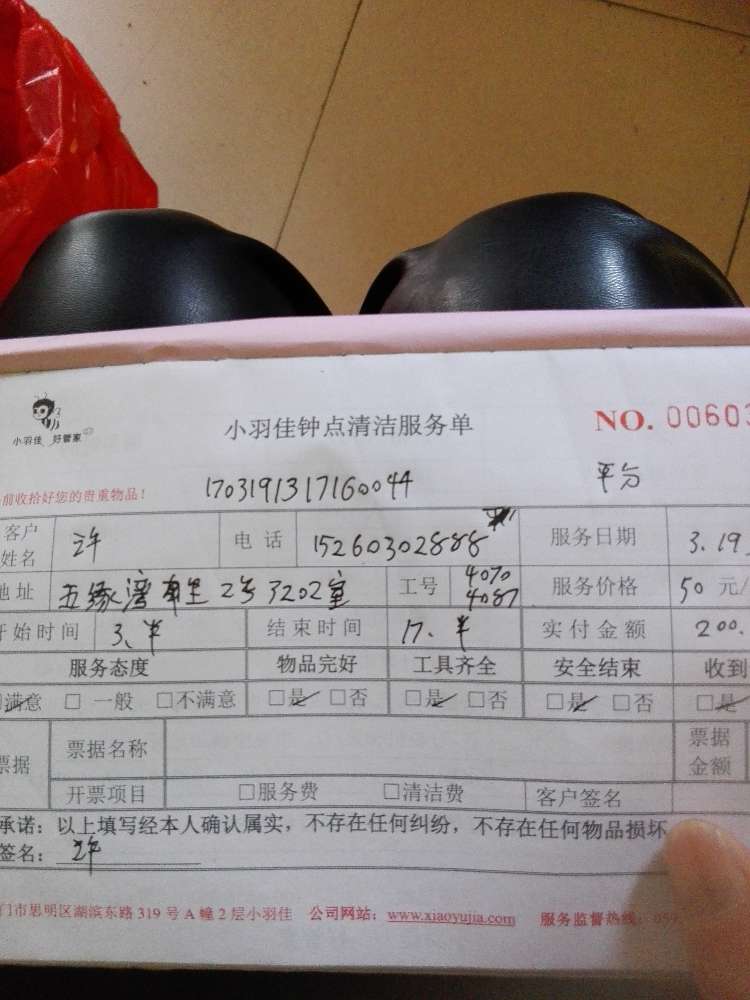 小羽佳 好管家
小羽佳钟点清洁服务单 NO. 00603
前收拾好您的贵重物品! 1703191317160044 平台
客户姓名 许 电话 15260302888 服务日期 3.19
地址 五缘湾 2号3202室 工号 4070 4087 服务价格 50元/
开始时间 3.半 结束时间 17.半 实付金额 200.
服务态度 物品完好 工具齐全 安全结束 收到
满意 □ 一般 □不满意 □是 □否 □是 □否 □是 □否 □是
票据 票据名称 票据金额
开票项目 □服务费 □清洁费 客户签名
承诺:以上填写经本人确认属实,不存在任何纠纷,不存在任何物品损坏
签名: 许
门市思明区湖滨东路 319 号 A 幢 2 层小羽佳 公司网站:www.xiaoyujia.com 服务监督热线:059